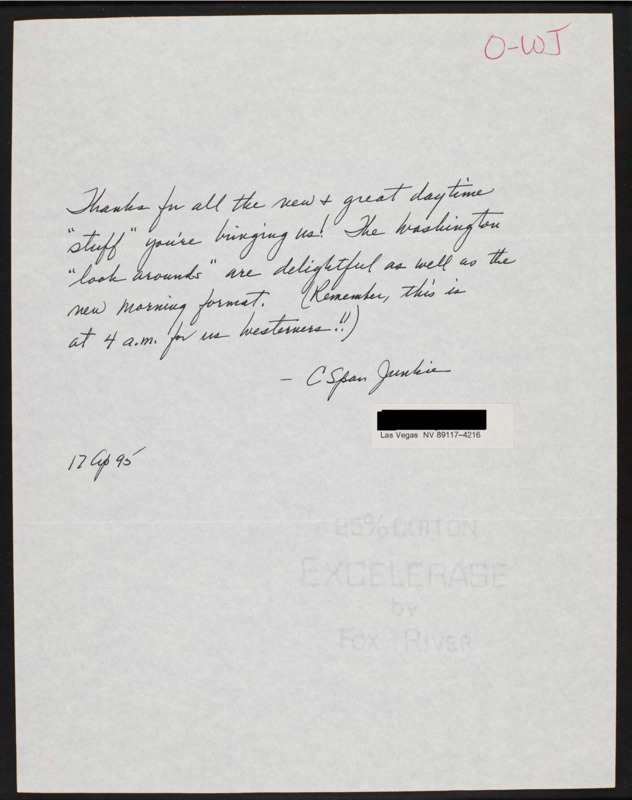 O-WJ
Thanks for all the new + great daytime
"stuff" you're bringing us! The Washington
"look arounds" are delightful as well as the
new morning format. (Remember, this is
at 4 a.m. for us Westerners!!)
- CSpan Junkie
Las Vegas NV 89117-4216
17 Ap 95
25% COTTON
EXCELERASE
by
FOX RIVER